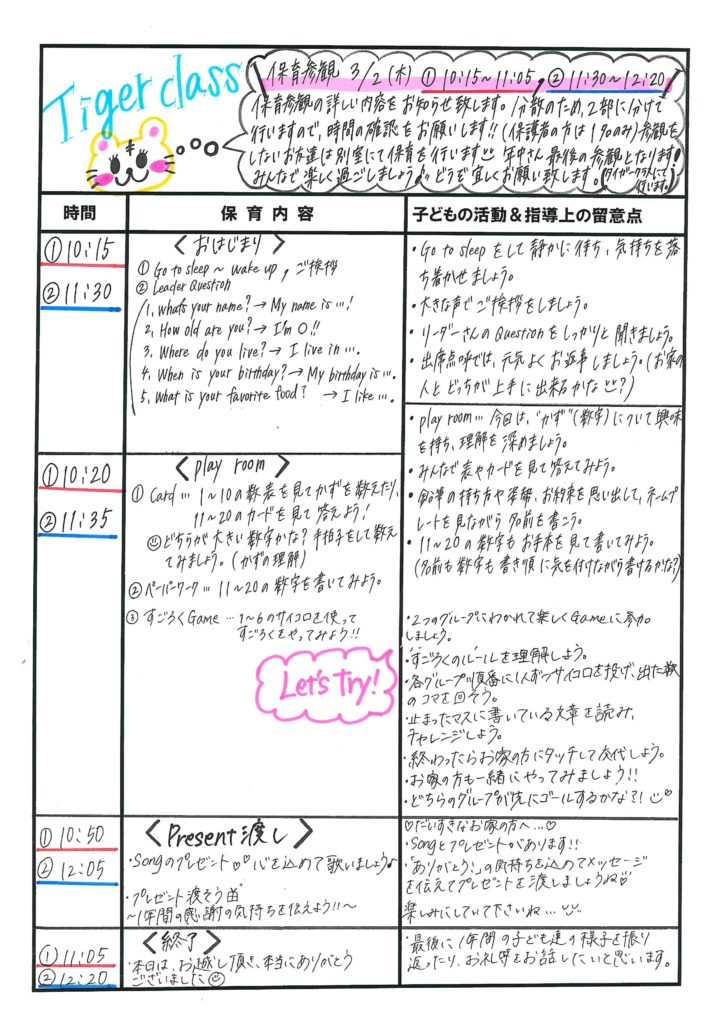 Tiger class
保育参観 3/2(木) ① 10:15~11:05, ② 11:30~12:20
保育参観の詳しい内容をお知らせ致します。人数のため、2部に分けて
行いますので、時間の確認をお願いします!!(保護者の方は1名のみ)参観を
しないお友達は別室にて保育を行います 年中さん最後の参観となります!
みんなで楽しく過ごしましょう♪どうぞ宜しくお願い致します。(タイガークラスにて
行います。)
時間
保育内容
子どもの活動&指導上の留意点
①10:15
②11:30
<おはじまり>
① Go to sleep ~ wake up, ご挨拶
② Leader Question
1. what's your name? → My name is …!
2. How old are you? → I'm ○!!
3. Where do you live? → I live in ….
4. When is your birthday? → My birthday is ….
5. what is your favorite food? → I like ….
・Go to sleep をして静かに待ち、気持ちを落
ち着かせましょう。
・大きな声でご挨拶をしましょう。
・リーダーさんのQuestionをしっかりと聞きましょう。
・出席点呼では、元気よくお返事しましょう。(お家の
人とどっちが上手に出来るかな?)
①10:20
②11:35
<play room>
① Card … 1~10の数表を見てかずを数えたり、
11~20のカードを見て答えよう!
どちらが大きい数字かな?手拍子をして数え
てみましょう。(かずの理解)
②ペーパーワーク … 11~20の数字を書いてみよう。
③ すごろくGame … 1~6のサイコロを使って
すごろくをやってみよう!!
Let's Try!
・play room … 今日は、"かず"(数字)について興味
を持ち、理解を深めましょう。
・みんなで表やカードを見て答えてみよう。
・鉛筆の持ち方や姿勢、お約束を思い出して、ネームプ
レートを見ながら名前を書こう。
・11~20の数字もお手本を見て書いてみよう。
(名前も数字も書き順に気を付けながら書けるかな?)
・2つのグループにわかれて楽しくGameに参加
しましょう。
・すごろくのルールを理解しよう。
・各グループ順番に1人ずつサイコロを投げ、出た数
のコマを回そう。
・止まったマスに書いている文章を読み、
チャレンジしよう。
・終わったらお家の方にタッチして交代しよう。
・お家の方も一緒にやってみましょう!!
・どちらのグループが先にゴールするかな?!
①10:50
②12:05
<Present渡し>
・Songのプレゼント♡♡心を込めて歌いましょう♪
・プレゼント渡そう曲
~1年間の感謝の気持ちを伝えよう!!~
♡だいすきなお家の方へ…♡
・Songとプレゼントがあります!!
・「ありがとう!」の気持ちを込めてメッセージ
を伝えてプレゼントを渡しましょうね♡
楽しみにしていて下さいね…
①11:05
②12:20
<終了>
・本日は、お越し頂き、本当にありがとう
ございました
・最後に、1年間の子ども達の様子を振り
返ったり、お礼等をお話したいと思います。